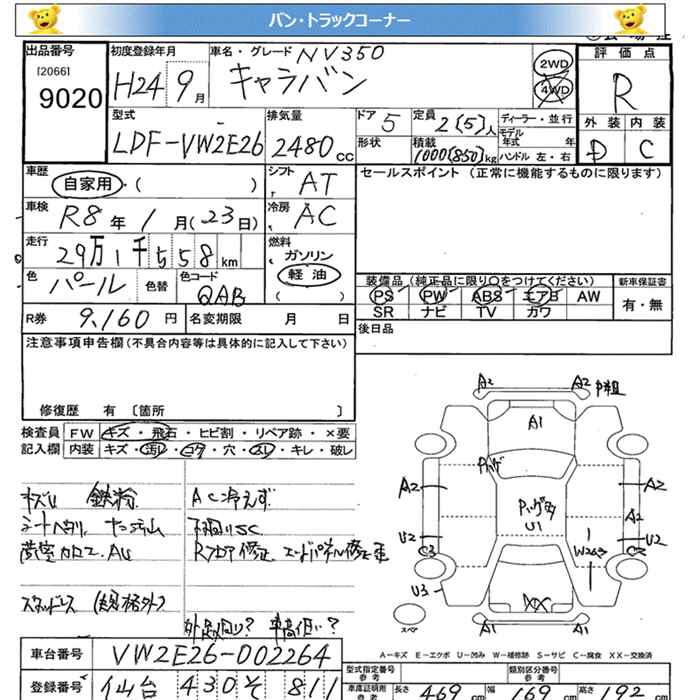 バン・トラックコーナー
出品番号
[2066]
9020
初度登録年月
H24 9月
車名・グレード NV350
キャラバン
2WD
4WD
評価点
R
外装 内装
D C
型式
LDF-VW2E26
排気量
2480cc
ドア 5
形状
定員 2(5)人
積載
1000(850)kg
ディーラー・並行
モデル年式 年
ハンドル 左・右
車歴
自家用・( )
シフト AT
車検
R8年1月(23日)
冷房 AC
走行
29万1千558km
燃料
ガソリン
軽油
( )
色 パール
色替
色コード
QAB
R券 9,160円
名変期限 月 日
セールスポイント (正常に機能するものに限ります)
装備品 (純正品に限り○をつけてください)
PS PW ABS エアB AW
SR ナビ TV カワ
新車保証書
有・無
後日品
注意事項申告欄(不具合内容等は具体的に記入して下さい)
修復歴 有 〔箇所 〕
検査員
記入欄
FW キズ・飛石・ヒビ割・リペア跡・×要
内装 キズ・汚レ・コゲ・穴・スレ・キレ・破レ
AC冷えず
下廻りSC
スタッドレス (規格外)
外品廻り? 車高低い?
A2 A2
A1
A2 A2
A2
U1
U2 U2
C3 C3
W2
U3
XX
A1 A1
スペア
A－キズ E－エクボ U－凹み W－補修跡 S－サビ C－腐食 XX－交換済
車台番号 VW2E26-002264
登録番号 仙台 430 そ 811
型式指定番号
参考
類別区分番号
参考
車庫証明用
参考
長さ 469cm 幅 169cm 高さ 192cm